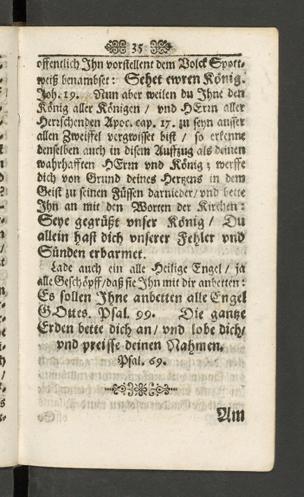 35
offentlich Ihn vorstellent dem Volck Spott-
weiß benambset: Sehet ewren König.
Joh. 19. Nun aber weilen du Ihne den
König aller Königen / vnd HErrn aller
Herrschenden Apoc. cap. 17. zu seyn ausser
allen Zweiffel vergwisset bist / so erkenne
denselben auch in disem Auffzug als deinen
wahrhafften HErrn vnd König; werffe
dich von Grund deines Hertzens in dem
Geist zu seinen Füssen darnieder / vnd bette
Ihn an mit den Worten der Kirchen:
Seye gegrüßt vnser König / Du
allein hast dich vnserer Fehler vnd
Sünden erbarmet.
Lade auch ein alle Heilige Engel / ja
alle Geschöpff / daß sie Ihn mit dir anbetten:
Es sollen Ihne anbetten alle Engel
GOttes. Psal. 99. Die gantze
Erden bette dich an / vnd lobe dich /
vnd preisse deinen Nahmen.
Psal. 69.
Am